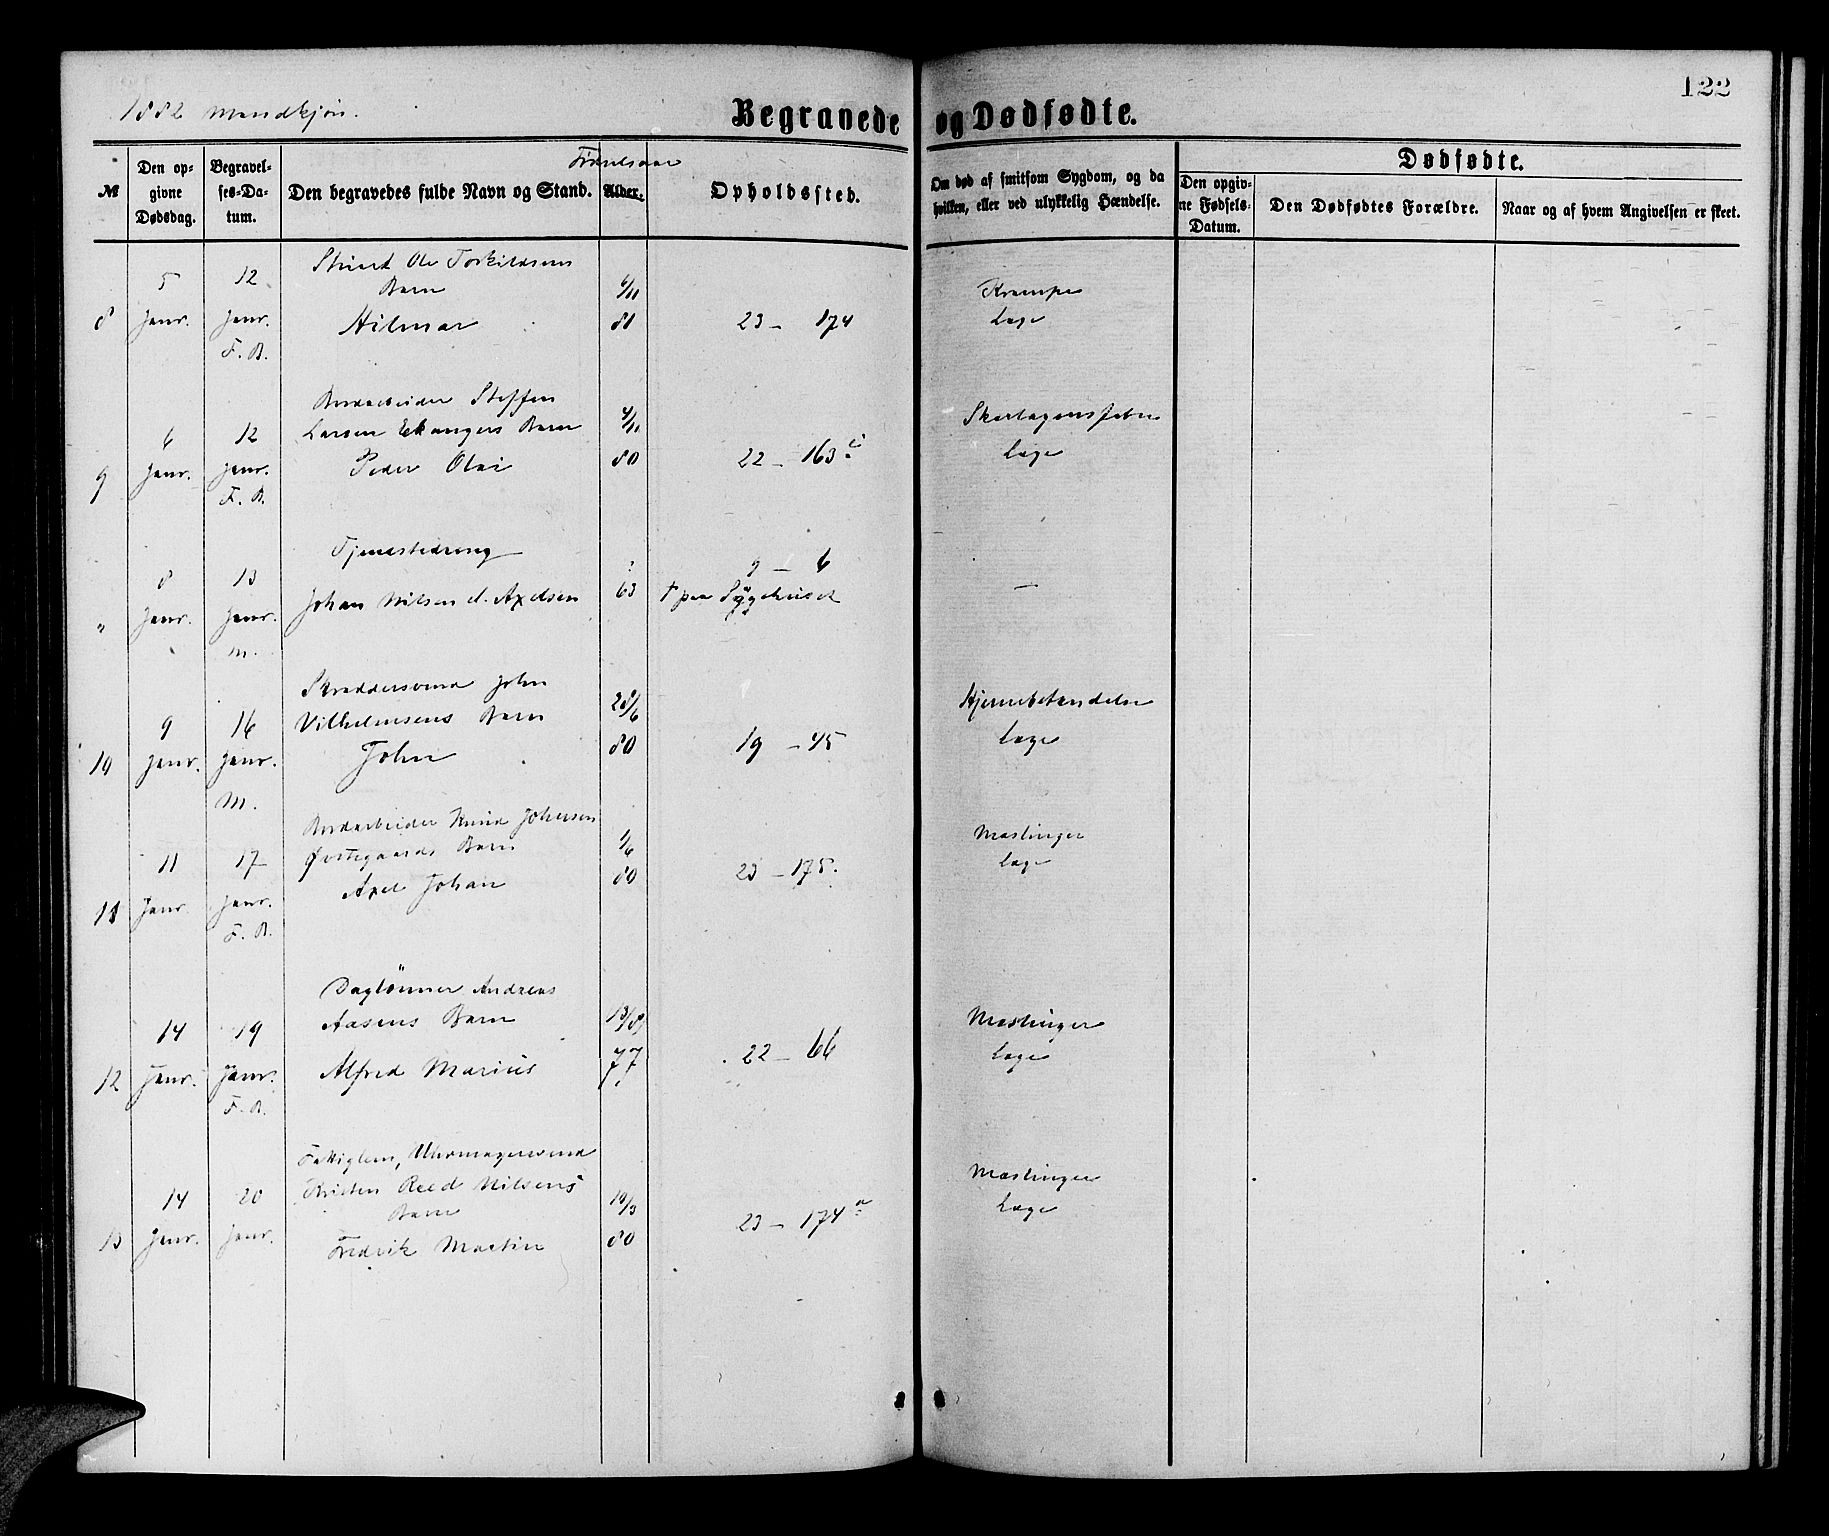 122
1882 Mandkjön.
Begravede og Dødfødte.
Fødselsaar
№
Den op-
givne
Dødsdag.
Begravel-
ses-Da-
tum.
Den begravedes fulde Navn og Stand.
Alder.
Opholdssted.
Om død af smitsom Sygdom, og da
hvilken, eller ved ulykkelig Hændelse.
Dødfødte.
Den opgiv-
ne Fødsels-
Datum.
Den Dødfødtes Forældre.
Naar og af hvem Angivelsen er skeet.
8
5
Janr.
12
Janr.
F. B.
Ole Torkildsens
Barn
Hilmar
6/11
81
23 - 174
Krampe
Læge
9
6
Janr.
12
Janr.
F. B.
Bordarbeider Steffen
Larsen Ekangers Barn
Peder Olai
4/11
80
22 - 163 c
Skarlagensfeber
Læge
"
8
Janr.
13
Janr.
M.
Tjenestedreng
Johan Nilsen el. Axelsen
?
63
9 - 6
† paa Sygehuset
—
10
9
Janr.
16
Janr.
M.
Skræddersvend John
Vilhelmsens Barn
John
28/6
80
19 - 45
Hjernebetændelse
Læge
11
11
Janr.
17
Janr.
F. B.
Bordarbeider Knud Johansen
Østegaards Barn
Axel Johan
1/6
80
23 - 175.
Mæslinger
Læge
12
14
Janr.
19
Janr.
F. B.
Daglönner Andreas
Aasens Barn
Alfred Marius
13/8
77
22 - 66
Mæslinger
Læge
13
14
Janr.
20
Janr.
Fattiglem, Uhrmagersvend
Kristen Reed Nilsens
Barn
Fredrik Martin
19/3
80
23 - 174 a
Mæslinger
Læge